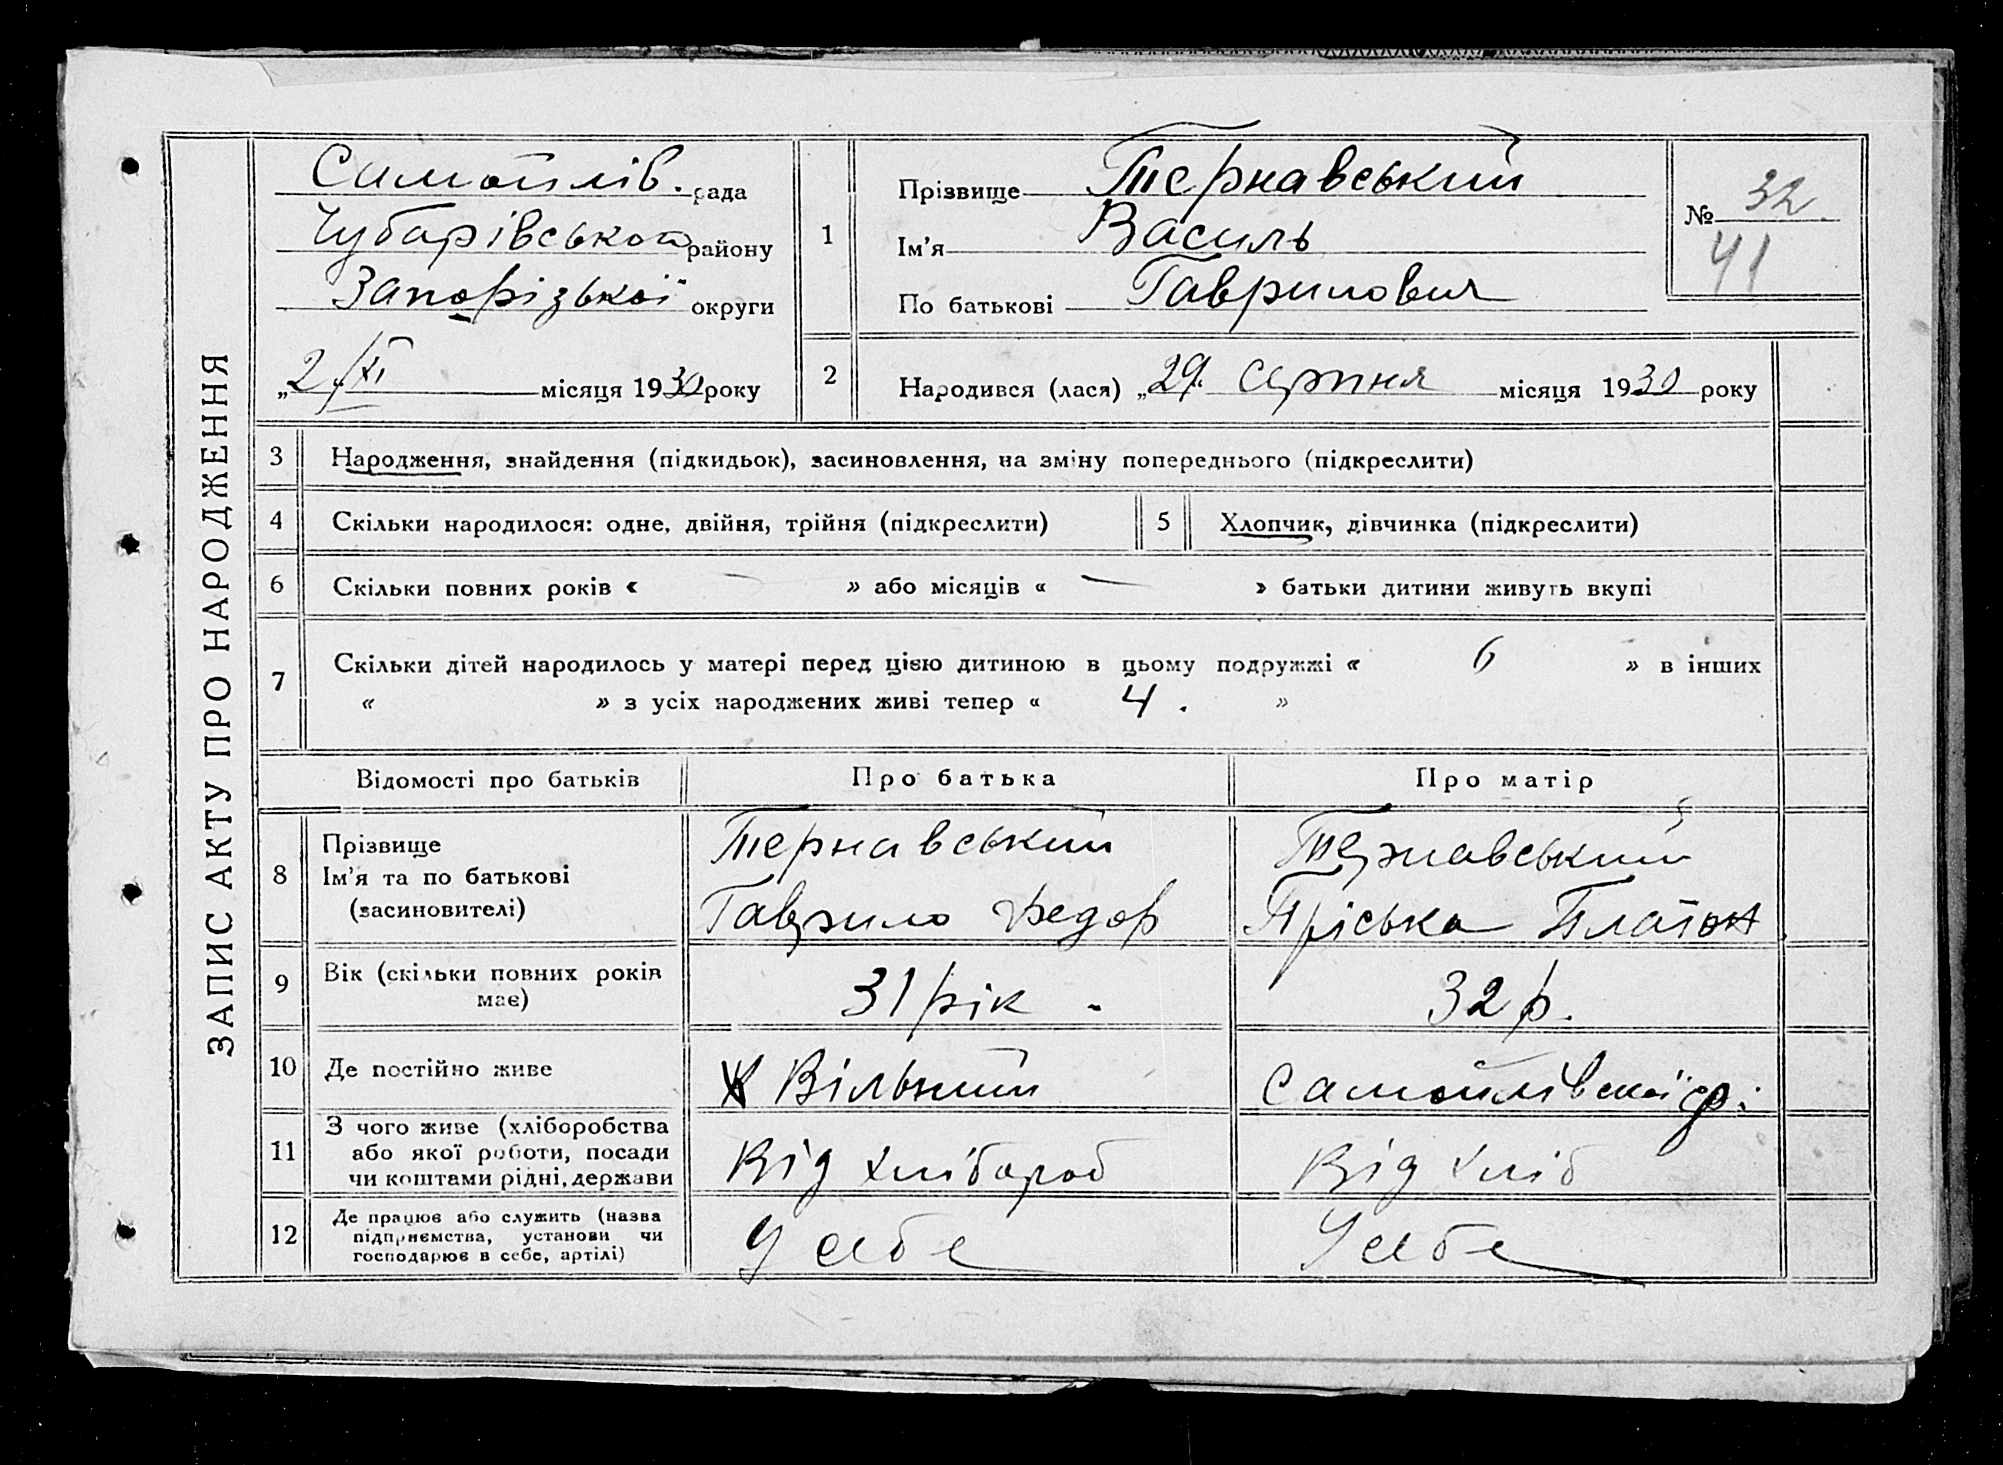 ЗАПИС АКТУ ПРО НАРОДЖЕННЯ
Самойлів. рада
Чубарівського району
Запорізької округи
„2/XI місяця 1930 року
1
Прізвище Тернавський
Ім'я Василь
По батькові Гаврилович
№ 32
41
2 Народився (лася) „29. серпня місяця 1930 року
3 Народження, знайдення (підкидьок), засиновлення, на зміну попереднього (підкреслити)
4 Скільки народилося: одне, двійня, трійня (підкреслити) 5 Хлопчик, дівчинка (підкреслити)
6 Скільки повних років « — » або місяців « — » батьки дитини живуть вкупі
7 Скільки дітей народилось у матері перед цією дитиною в цьому подружжі « 6 » в інших
« » з усіх народжених живі тепер « 4. »
Відомості про батьків Про батька Про матір
8 Прізвище
Ім'я та по батькові
(засиновителі)
Тернавський
Гаврило Федор
Тернавський
Пріська Платон
9 Вік (скільки повних років
має)
31 рік.
32 р.
10 Де постійно живе
х Вільний
Самойлівської ср.
11 З чого живе (хліборобства
або якої роботи, посади
чи коштами рідні, держави
Від хлібороб
Від хліб
12 Де працює або служить (назва
підприємства, установи чи
господарює в себе, артілі)
У себе
У себе